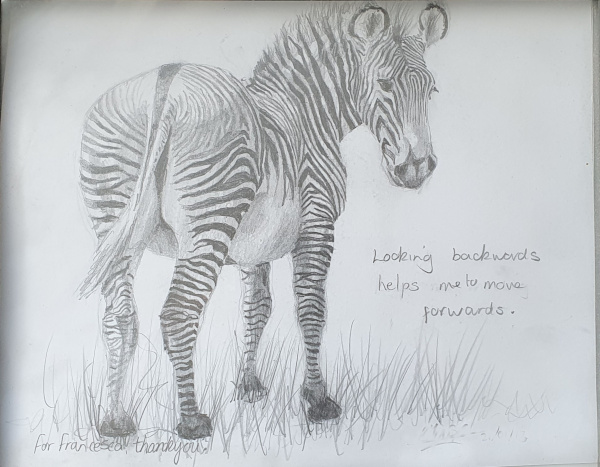 Looking backwards
helps me to move
forwards.
For Francesca, thankyou.